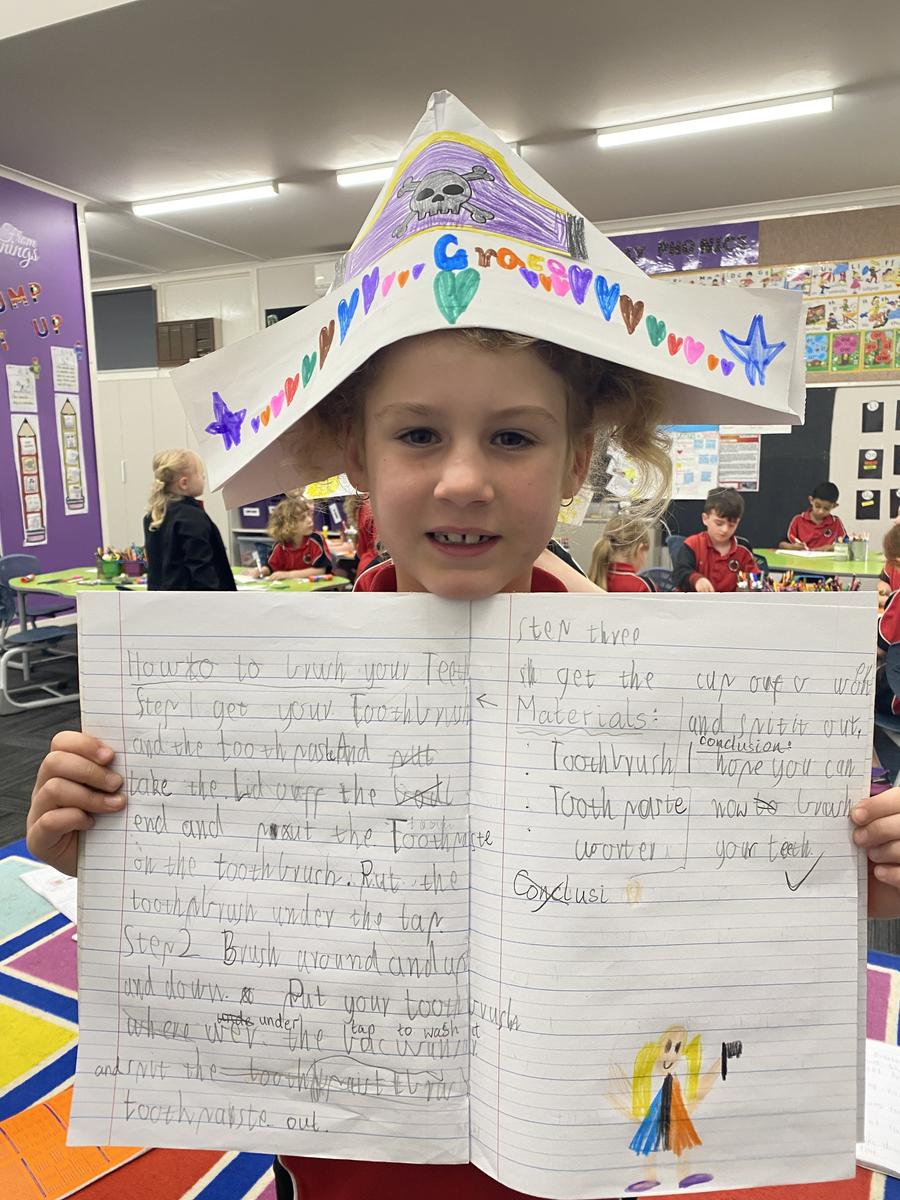 Grace
PHONICS
From
UMP
UP
How to to brush your Teeth
Step 1 get your Toothbrush
and the toothpaste And putt
take the Lid off the
end and put the Toothpaste
on the toothbrush. Put the
toothbrush under the tap
Step 2 Brush around and up
and down. Put your toothbrush
where under the tap to wash it
and spit the
toothpaste out.
Step three
get the cup out
Materials: and spit it out.
conclusion:
Toothbrush I hope you can
Toothpaste now to brush
worter your teeth.
Conclusi